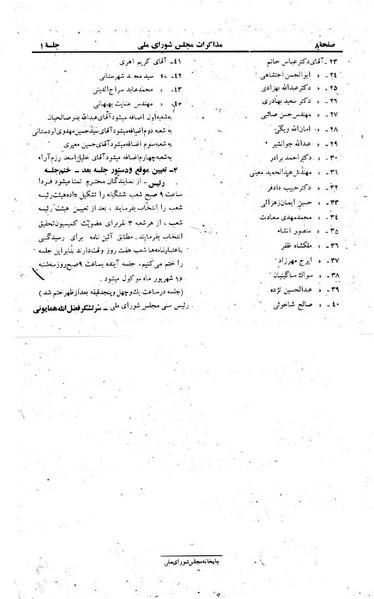 صفحه ۸
مذاکرات مجلس شورای ملی
جلسه ۱
۲۳ - آقای دکتر عباس حاتم
۲۴ - » ابوالحسن احتشامی
۲۵ - » دکتر عبدالله بهزادی
۲۶ - » دکتر سعید بهادری
۲۷ - » مهندس حسن صائبی
۲۸ - » امان‌الله ریگی
۲۹ - » عبدالله جوانشیر
۳۰ - » دکتر احمد برادر
۳۱ - » مهندس عبدالحمید معینی
۳۲ - » دکتر حبیب دادفر
۳۳ - » حسین ایمان زهرائی
۳۴ - » محمدمهدی سعادت
۳۵ - » منصور افشاه
۳۶ - » ملکشاه ظفر
۳۷ - » ایرج مهرزاد
۳۸ - » سواک ساگینیان
۳۹ - » عبدالحسین نژده
۴۰ - » صالح شاخوئی
۴۱ - آقای کریم اهری
۴۲ - » سید محمد شهرستانی
۴۳ - » محمدعابد سراج‌الدینی
۴۴ - مهندس عنایت بهبهانی
به شعبه اول اضافه میشود آقای عبدالله بدرصالحیان
به شعبه دوم اضافه میشود آقای سیدحسین مهدوی اردستانی
به شعبه سوم اضافه میشود آقای حسین معیری
به شعبه چهارم اضافه میشود آقای خلیل اسعد رزم‌آراء
۳- تعیین موقع و دستور جلسه بعد - ختم جلسه
رئیس - از نمایندگان محترم تمنا میشود فردا
ساعت ۹ صبح شعب ششگانه را تشکیل داده هیئت رئیسه
شعب را انتخاب بفرمایند ، بعد از تعیین هیئت رئیسه
شعب ، از هر شعبه ۳ نفر برای عضویت کمیسیون تحقیق
انتخاب بفرمایند . مطابق آئین نامه برای رسیدگی
باعتبارنامه‌ها شعب هفت روز وقت دارند بنابراین جلسه
را ختم می‌کنیم ، جلسه آینده بساعت ۹ صبح روز سه‌شنبه
۱۶ شهریور ماه موکول میشود .
(جلسه در ساعت یک و چهل و پنج دقیقه بعد از ظهر ختم شد)
رئیس سنی مجلس شورای ملی - سرلشکر فضل‌الله همایونی
چاپخانه مجلس شورای ملی